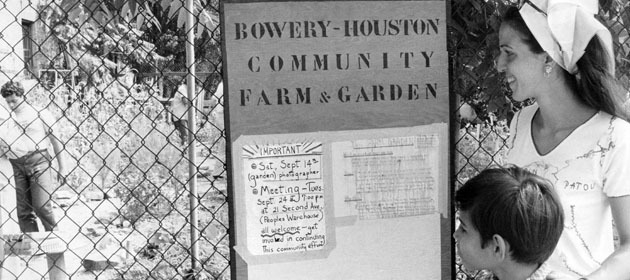 BOWERY-HOUSTON
COMMUNITY
FARM & GARDEN
IMPORTANT
Sat, Sept 14th
(garden) photographer
Meeting - Tues.
Sept 24th 7:00 pm
at 21 Second Ave,
(Peoples Warehouse)
all welcome - get
involved in continuing
this community effort
PATOU